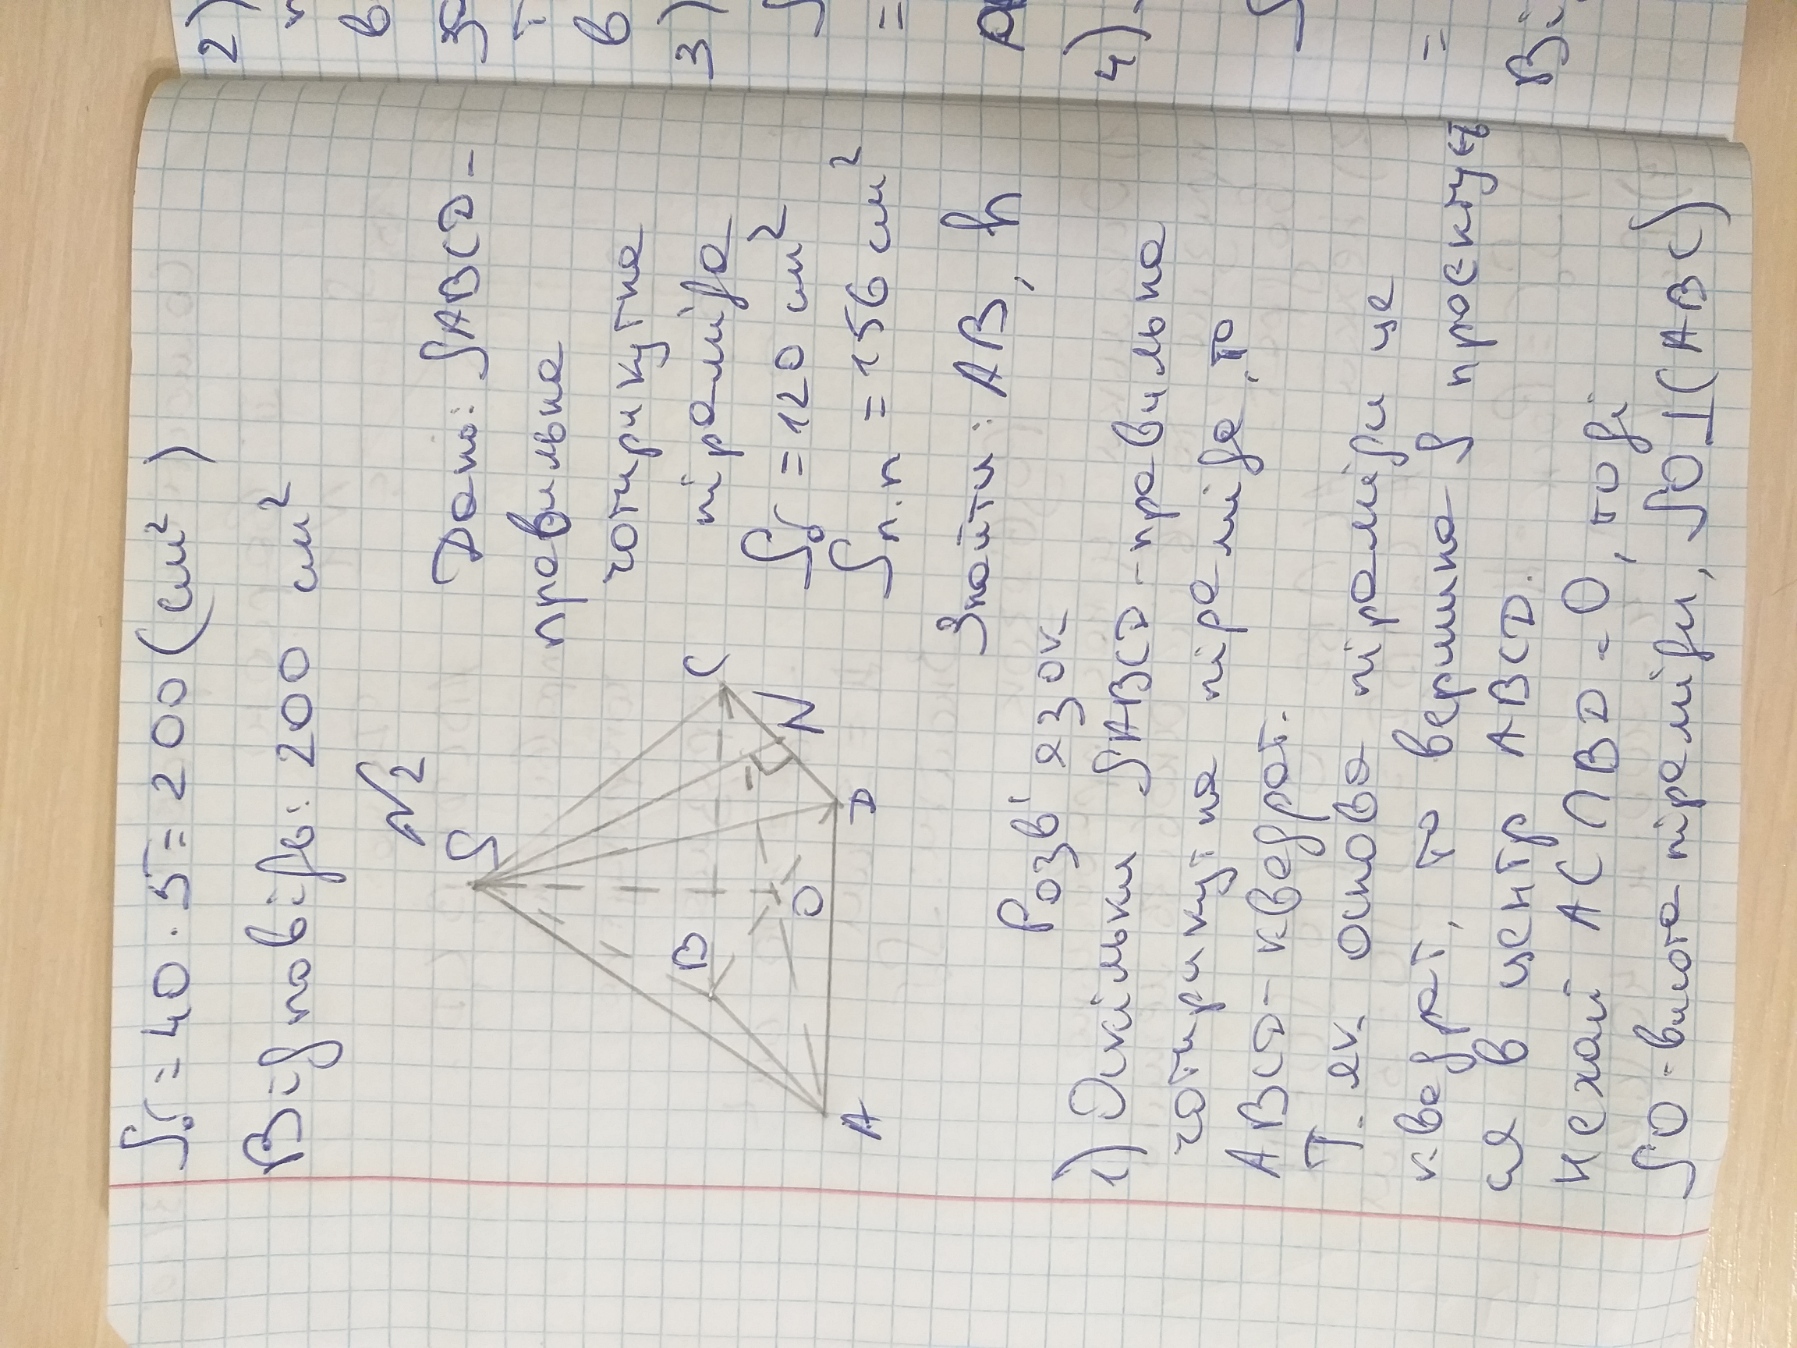 Sб = 40 · 5 = 200 (см²)
Відповідь: 200 см²
№2
S
B
C
O
N
A
D
Дано: SABCD –
правильна
чотирикутна
піраміда
Sб = 120 см²
Sп.п = 156 см²
Знайти: AB, h
Розв'язок
1) Оскільки SABCD – правильна
чотирикутна піраміда, то
ABCD – квадрат.
Т. як основа піраміди це
квадрат, то вершина S проєктуєть
ся в центр ABCD.
Нехай AC∩BD = O, тоді
SO - висота піраміди, SO⊥(ABC)
2)
п
в
3)
=
4).
=
Ві